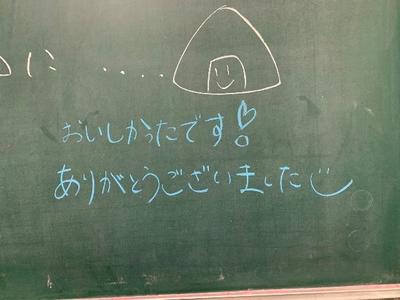 に ・・・・・
おいしかったです!
ありがとうございました